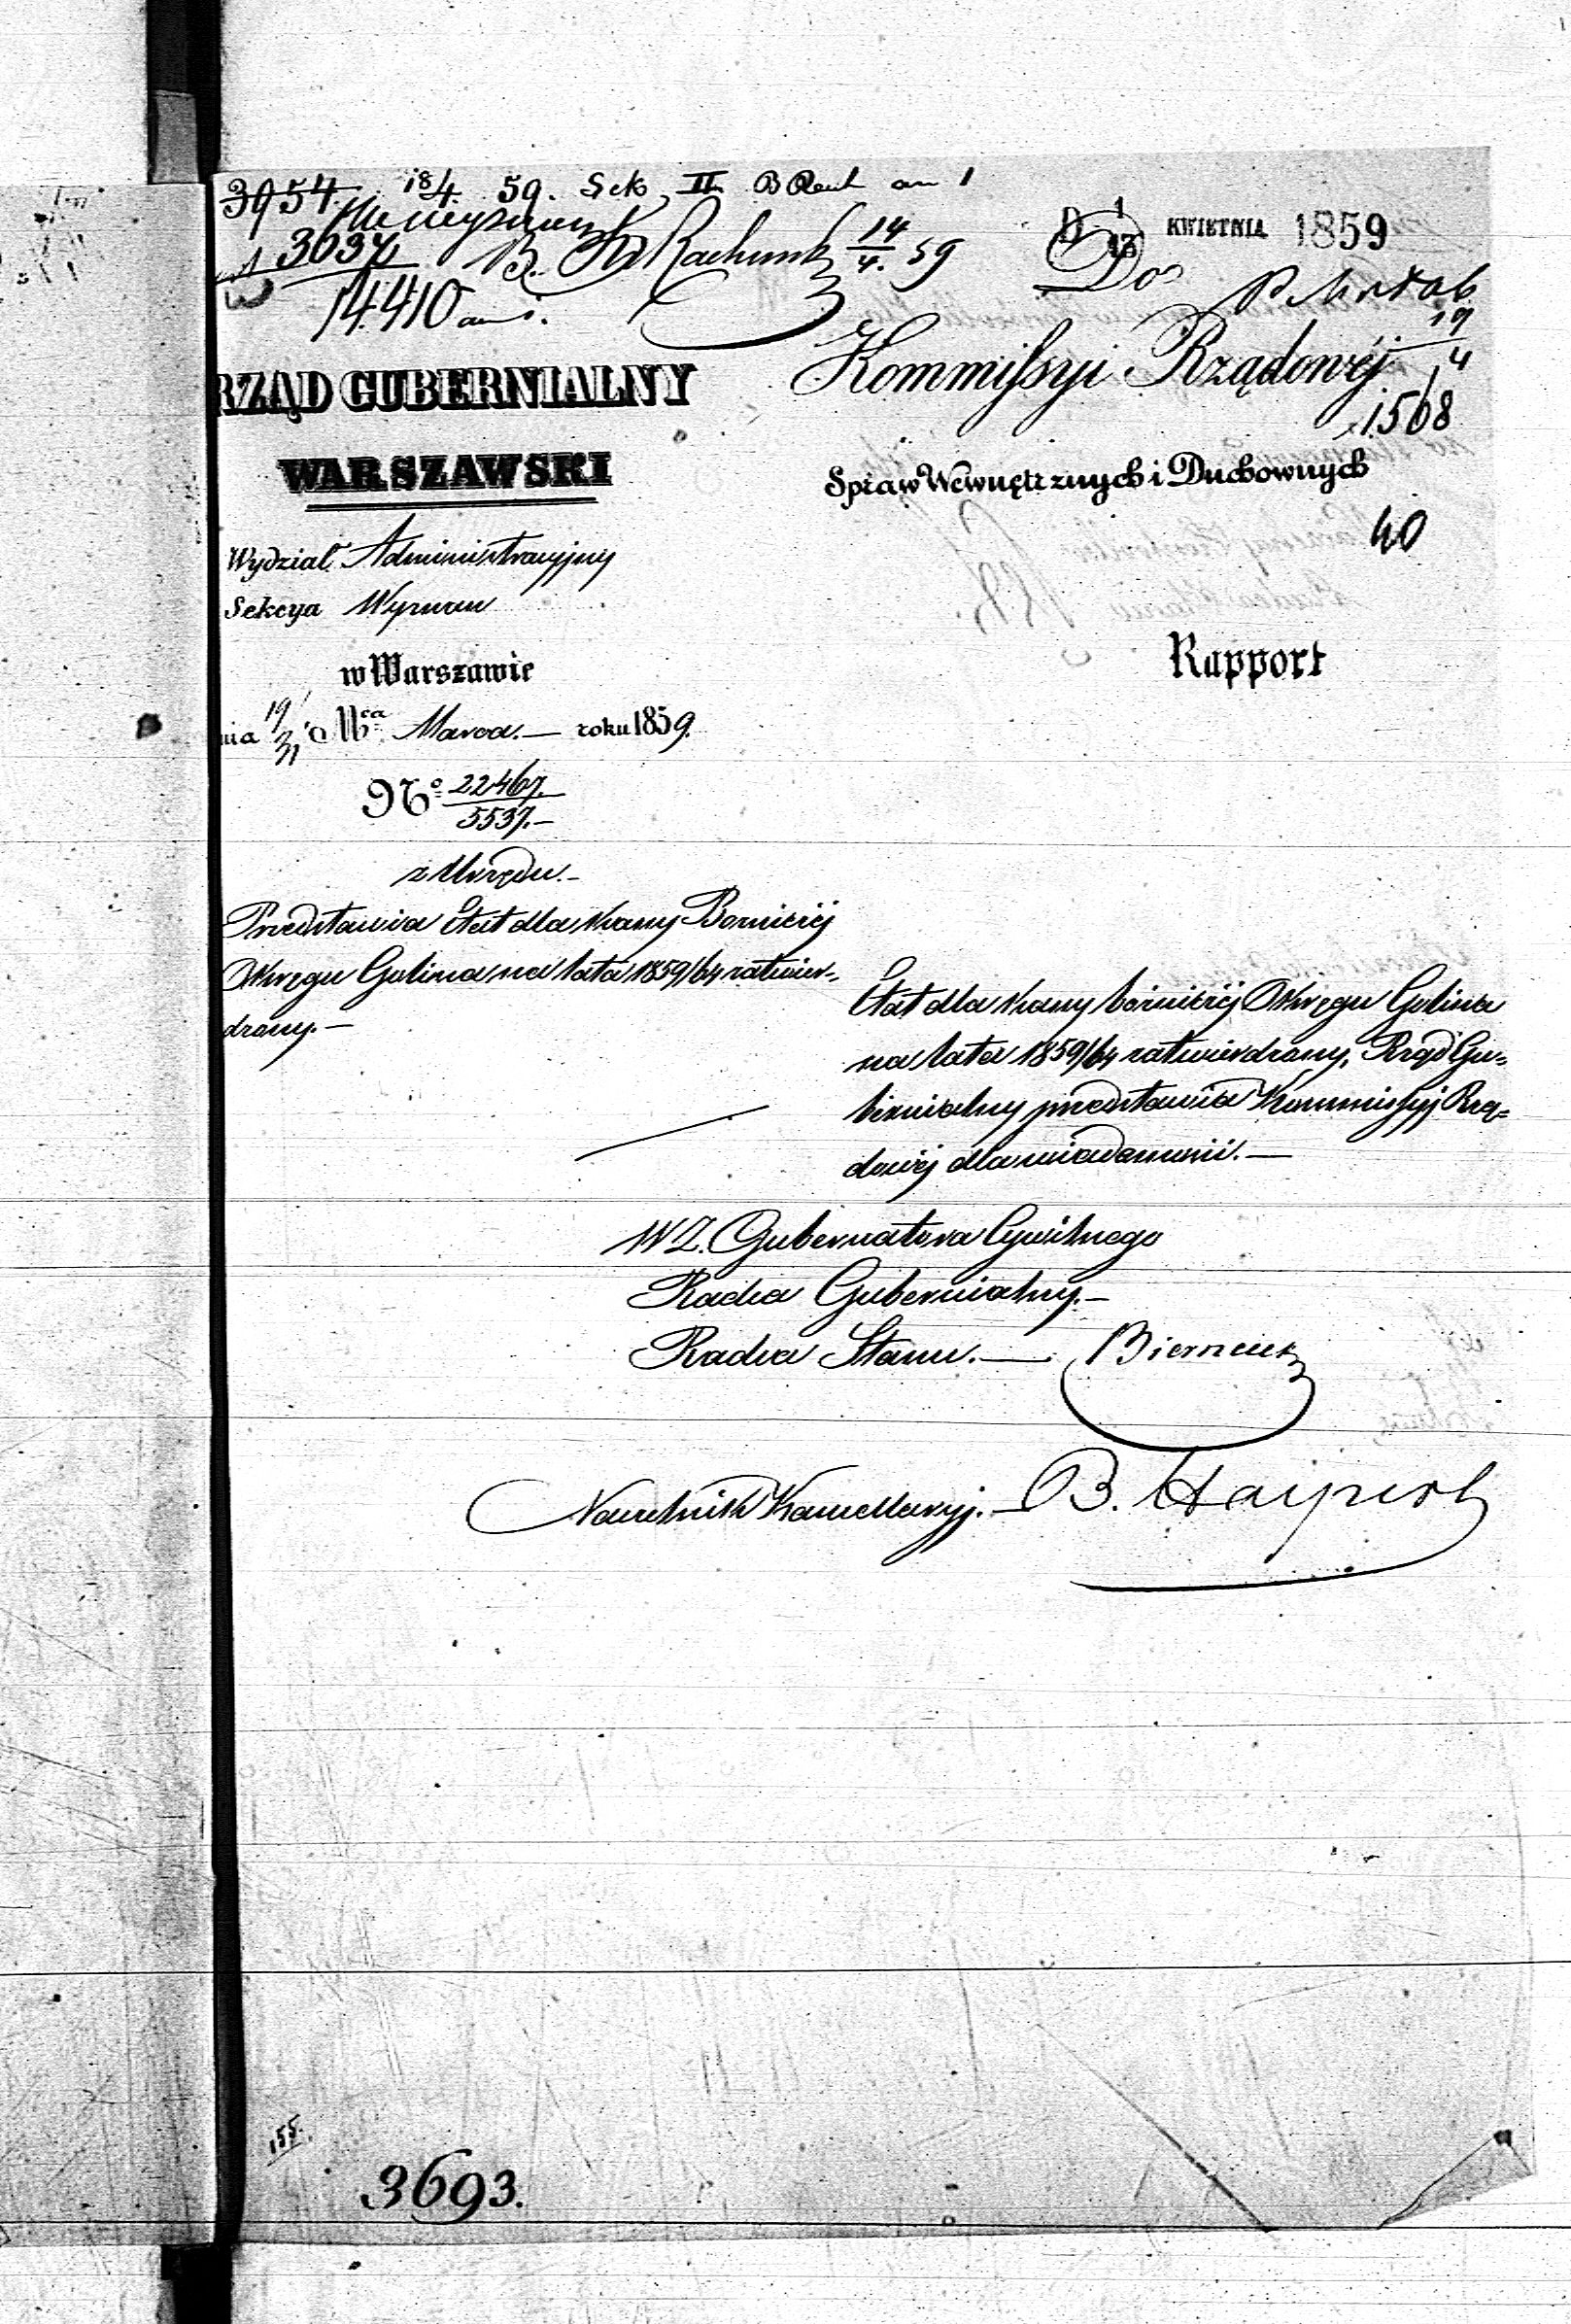 3954 18/4 59. Sek II B
3697 B. Rachunk 14/4. 59
14410
D 1/13 KWIETNIA 1859
Do
19/4
Kommissyi Rządowéj
1568
Spraw Wewnętrznych i Duchownych
40
Rapport
RZĄD GUBERNIALNY
WARSZAWSKI
Wydział Administracyjny
Sekcya Wyznań
w Warszawie
nia 19/31 Mca Marca.— roku 1859.
No 22467./5537.—
z Urzędu.—
Przedstawia Etat dla Kassy Bożniczéj
Okręgu Golina na lata 1859/64 zatwier-
dzony.—
Etat dla Kassy bóżniczéj Okręgu Golina
na lata 1859/64 zatwierdzony, Rząd Gu-
bernialny przedstawia Kommissyi Rzą-
dowéj dla wiadomości.—
W Z. Gubernatora Cywilnego
Radca Gubernialny.—
Radca Stanu.—
Naczelnik Kancellaryj.— B.
155.
3693.